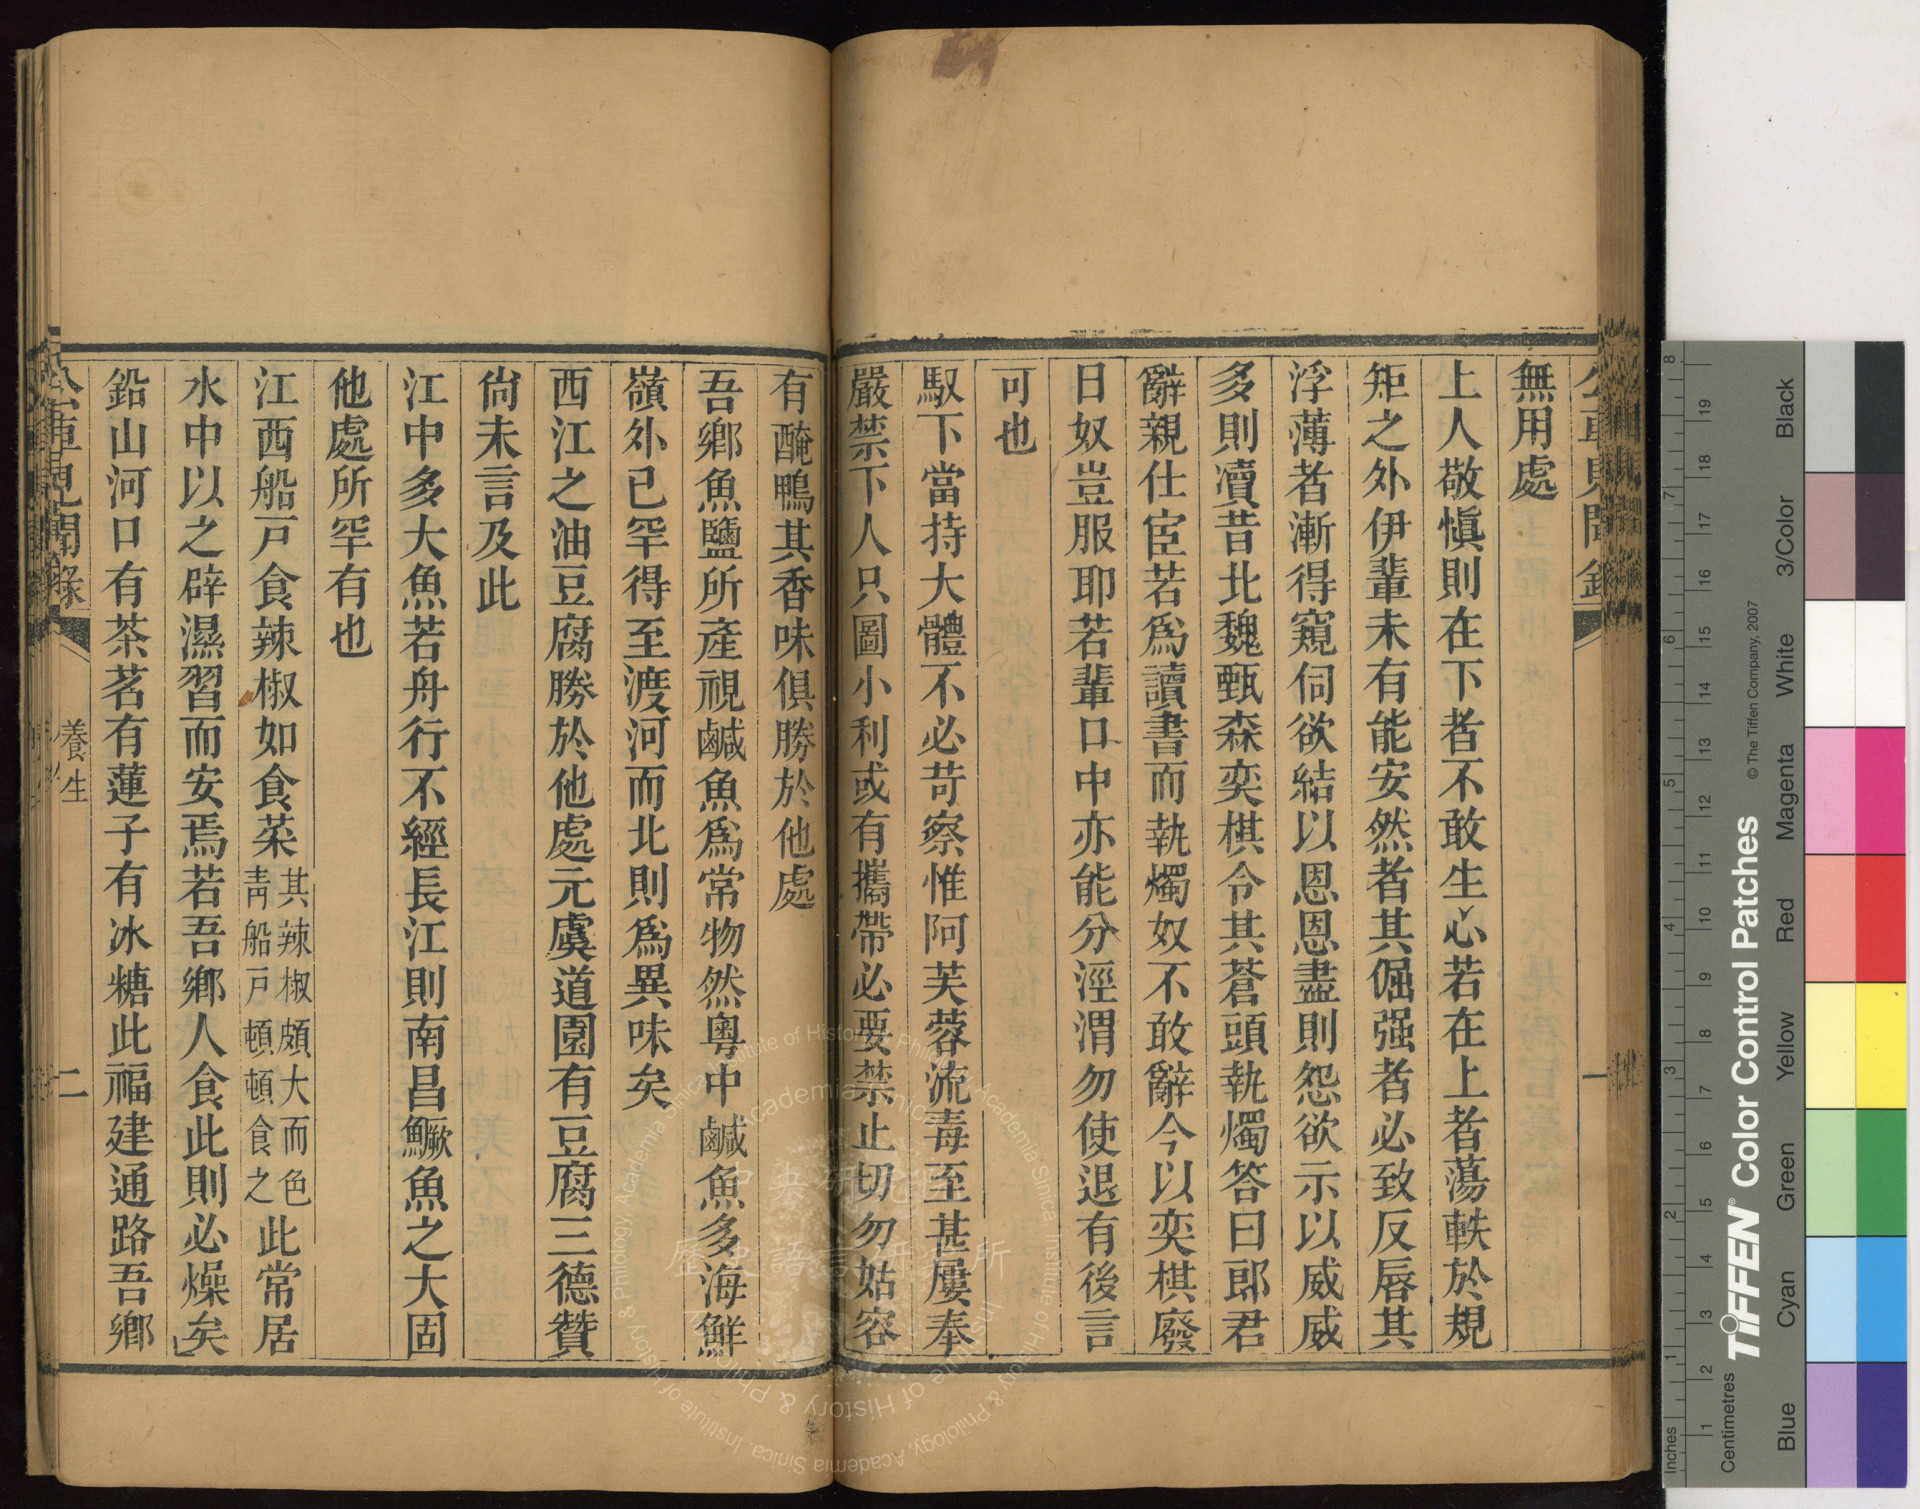 無用處
上人敬愼則在下者不敢生心若在上者蕩軼於規
矩之外伊輩未有能安然者其倔强者必致反唇其
浮薄者漸得窺伺欲結以恩恩盡則怨欲示以威威
多則瀆昔北魏甄森奕棋令其蒼頭執燭答曰郎君
辭親仕宦若爲讀書而執燭奴不敢辭今以奕棋廢
日奴豈服耶若輩口中亦能分涇渭勿使退有後言
可也
馭下當持大體不必苛察惟阿芙蓉流毒至甚屢奉
嚴禁下人只圖小利或有攜帶必要禁止切勿姑容
有醃鴨其香味俱勝於他處
吾鄉魚鹽所產視鹹魚爲常物然粤中鹹魚多海鮮
嶺外已罕得至渡河而北則爲異味矣
西江之油豆腐勝於他處元虞道園有豆腐三德贊
尙未言及此
江中多大魚若舟行不經長江則南昌鱖魚之大固
他處所罕有也
江西船戸食辣椒如食菜其辣椒頗大而色靑船戸頓頓食之此常居
水中以之辟濕習而安焉若吾鄉人食此則必燥矣
鉛山河口有茶茗有蓮子有冰糖此福建通路吾鄉
公車見聞錄 養生 二
Centimetres
Inches
TIFFEN® Color Control Patches
© The Tiffen Company, 2007
Blue Cyan Green Yellow Red Magenta White 3/Color Black
歷史語言研究所
Institute of History & Philology, Academia Sinica